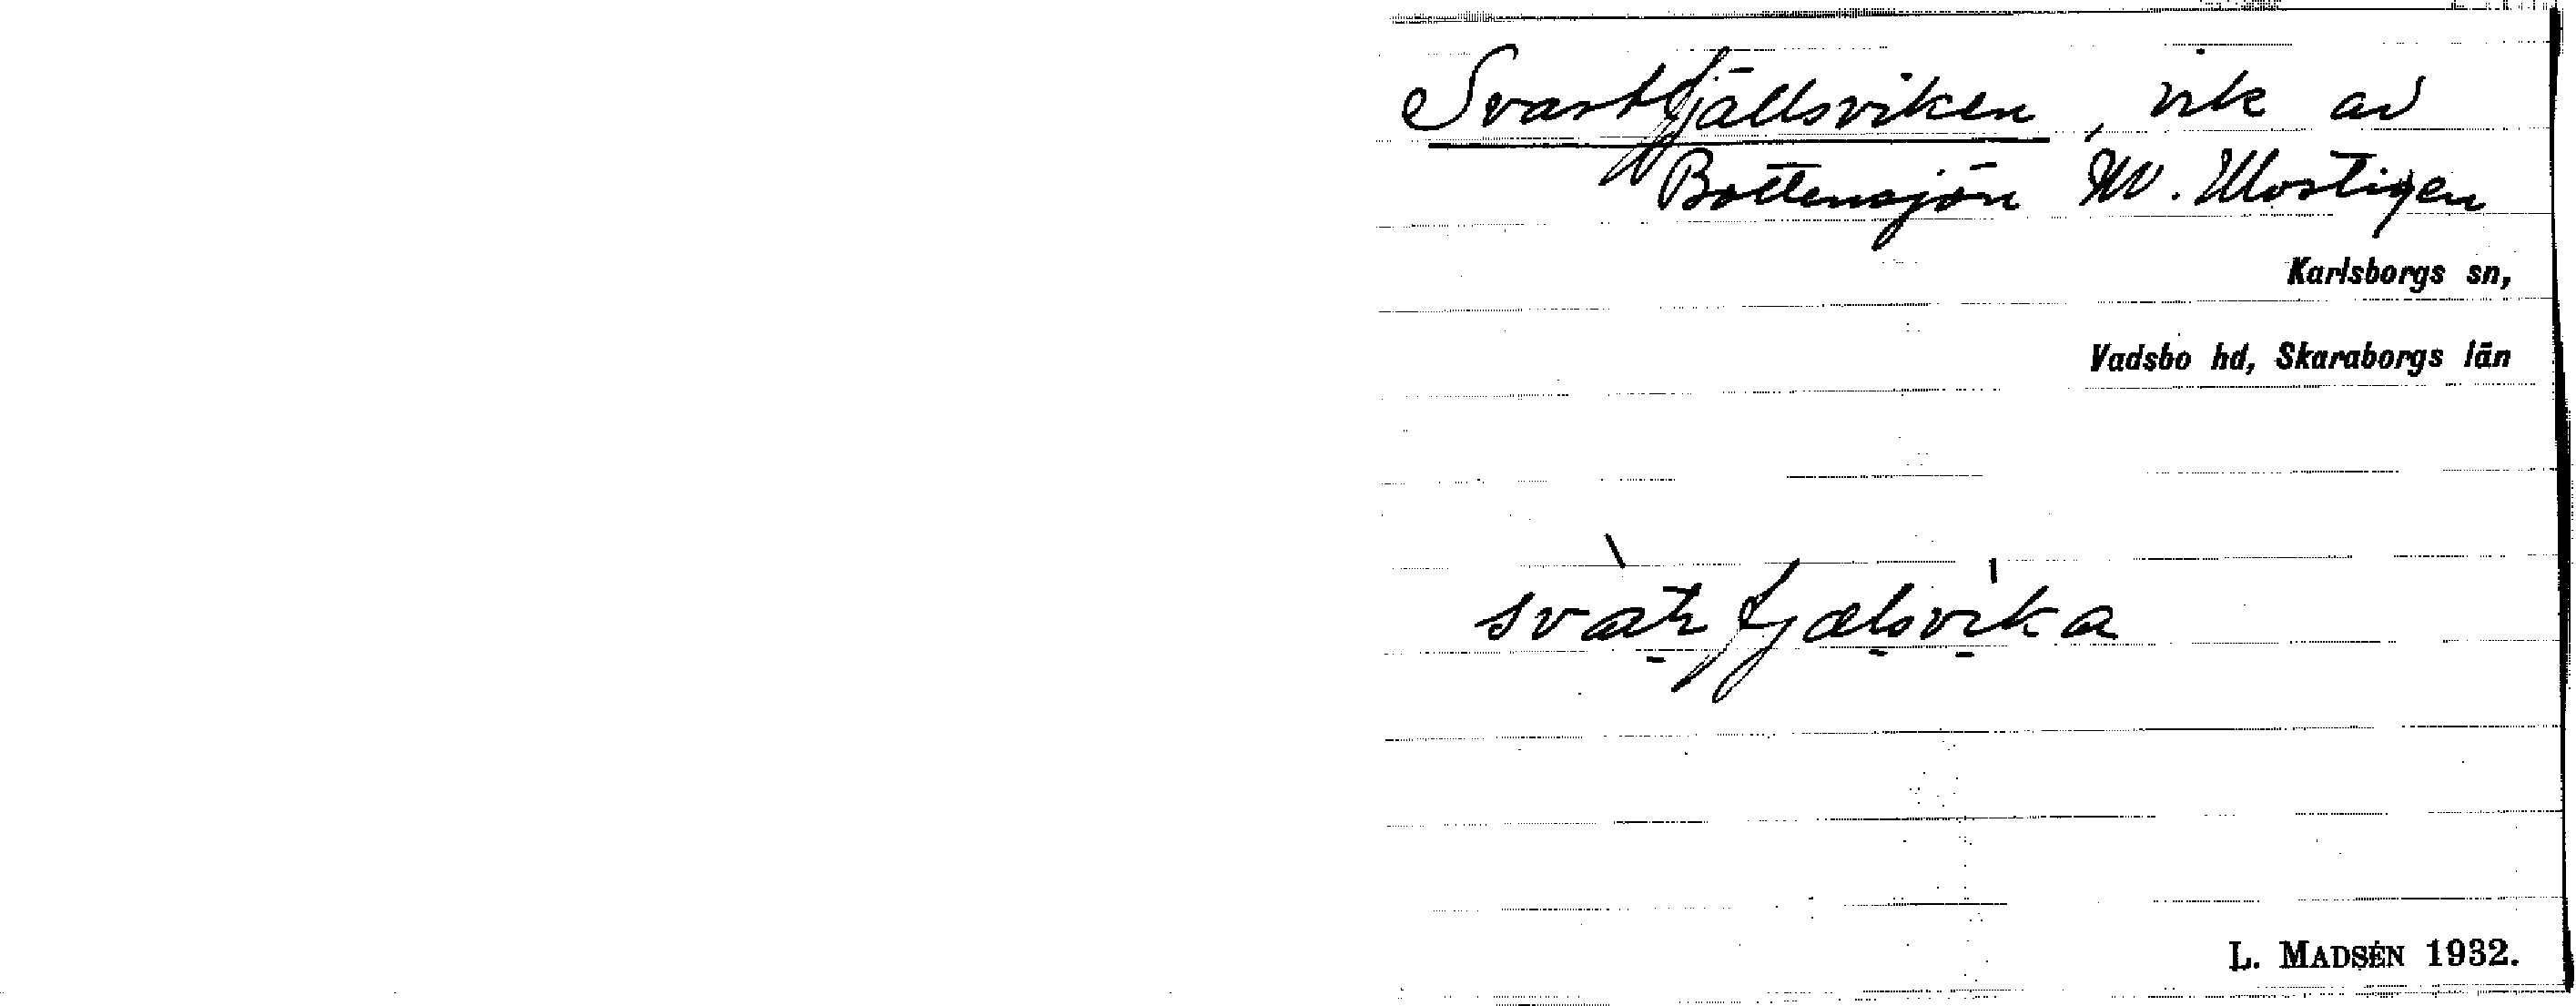 Svartfjällsviken, vik av
Bottensjön NV. Mostigen
Karlsborgs sn,
Vadsbo hd, Skaraborgs län
L. MADSÉN 1932.